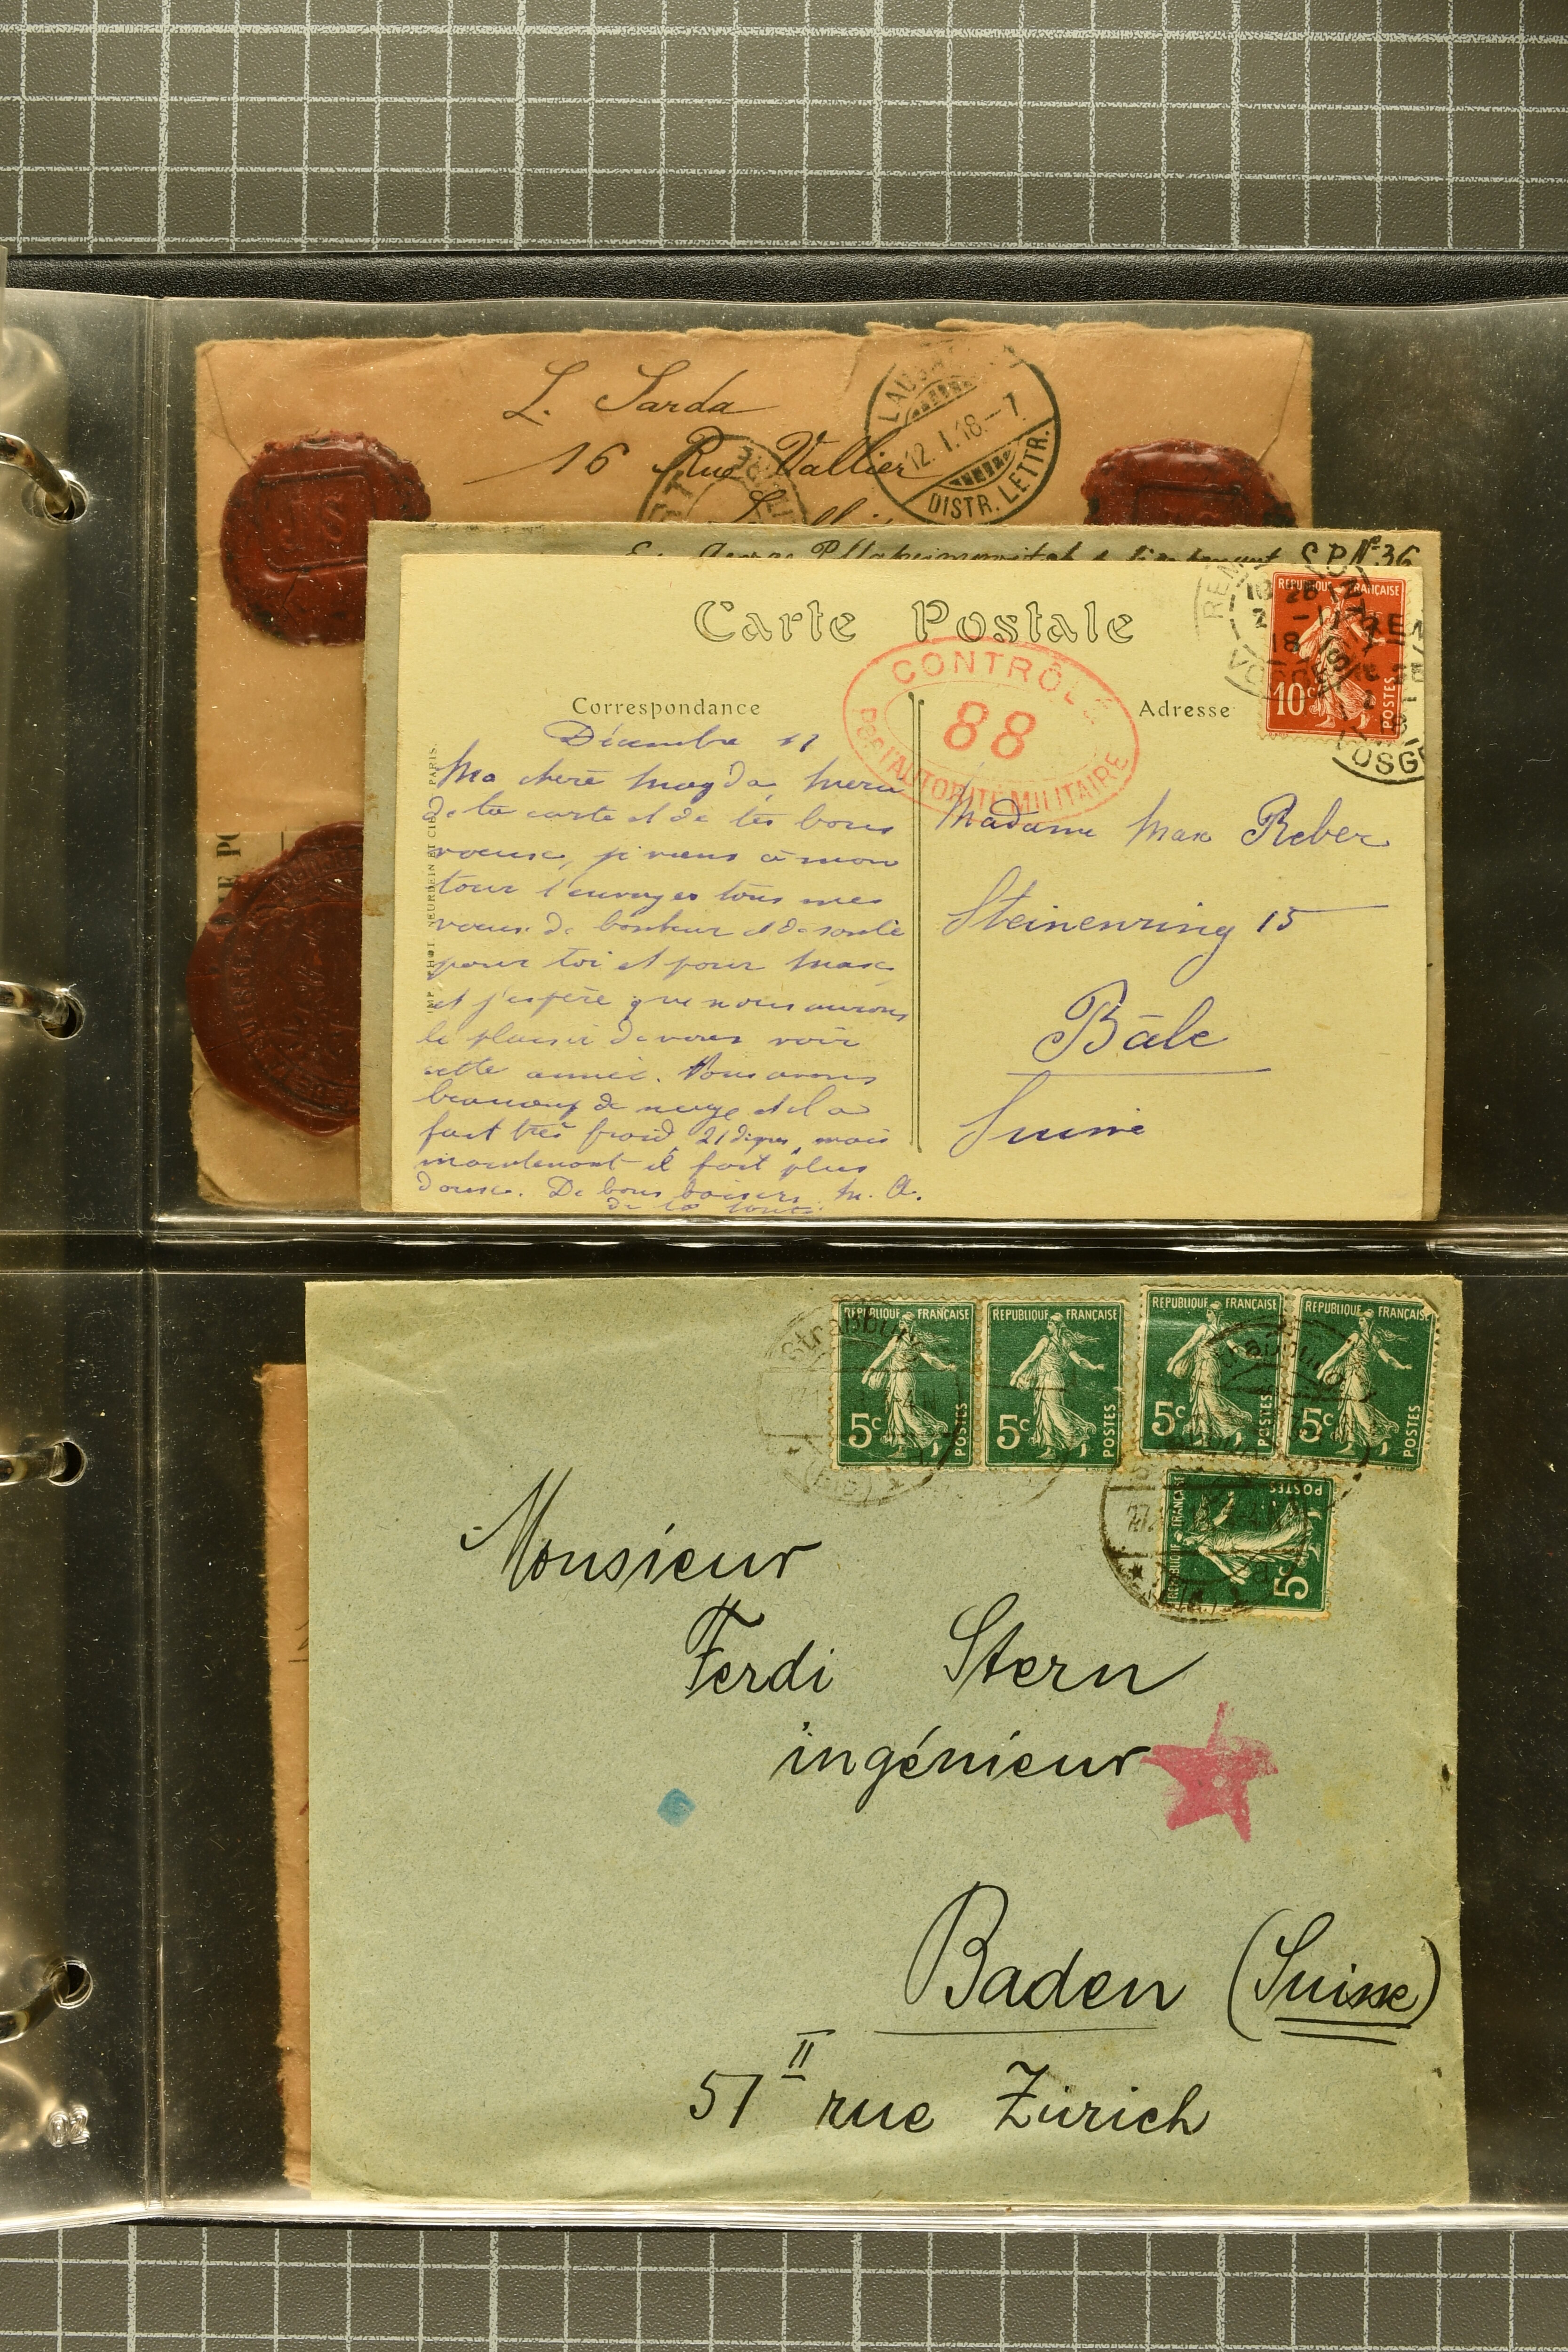 L. Sarda
16 Rue Vallier
LAUS
12.I.18.-7
DISTR. LETTR.
S.P. N° 36
Carte Postale
CONTRÔLE
88
PAR L'AUTORITÉ MILITAIRE
REPUBLIQUE FRANÇAISE
10c
POSTES
VOSGES
Correspondance
Adresse
IMP. PHOT. NEURDEIN ET CIE PARIS.
Décembre 31
Ma chère Magda, merci
de ta carte et de tes bons
voeux, je viens à mon
tour t'envoyer tous mes
voeux de bonheur et de santé
pour toi et pour Max
et j'espère que nous aurons
le plaisir de vous voir
cette année. Nous avons
beaucoup de neige et il a
fait très froid, 21 degrés, mais
maintenant il fait plus
doux. De bons baisers M. A.
de
Madame Max Reber
Steinenring 15
Bâle
Suisse
REPUBLIQUE FRANÇAISE
5c
POSTES
REPUBLIQUE FRANÇAISE
5c
POSTES
REPUBLIQUE FRANÇAISE
5c
POSTES
REPUBLIQUE FRANÇAISE
5c
POSTES
REPUBLIQUE FRANÇAISE
5c
POSTES
Straßburg
(Els)
Monsieur
Ferdi Stern
ingénieur
Baden (Suisse)
51 II rue Zürich
02